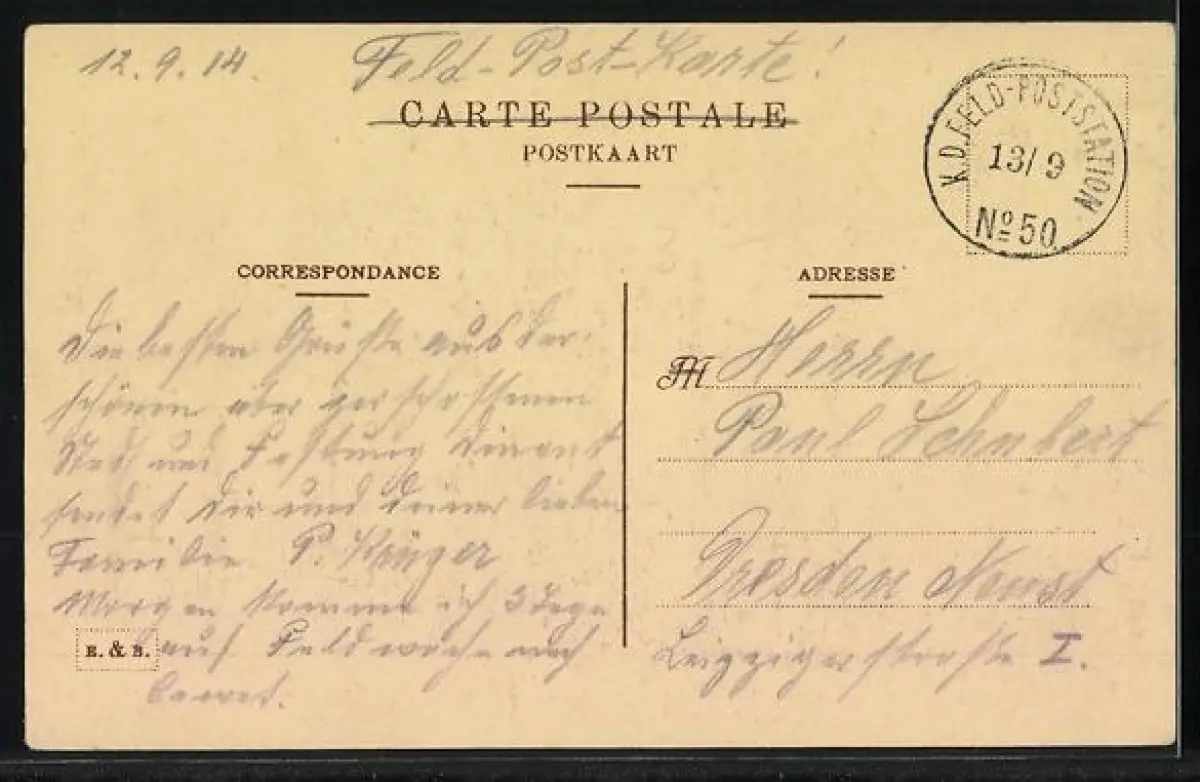 12.9.14. Feld-Post-Karte!
CARTE POSTALE
POSTKAART
K.D.FELD-POSTSTATION
13/9
No 50
CORRESPONDANCE
ADRESSE
Die besten Grüße aus der
schönen aber zerschossenen
Stadt und Festung Dinant
sendet Dir und deiner lieben
Familie P. Krüger
Morgen komme ich 3 Tage
auf Feldwache nach
E. & B.
M Herrn
Paul Schubert
Dresden Neust
Leipzigerstraße I.